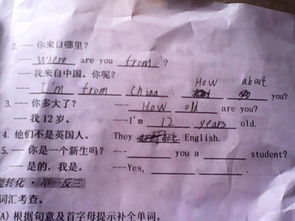 2. — 你来自哪里?
— where are you from ?
— 我来自中国。你呢?
— I'm from China . How about you?
3. — 你多大了? — How old are you?
— 我 12 岁。 —I'm 12 years old.
4. 他们不是英国人。 They English.
5. — 你是一个新生吗? — you a student?
— 是的,我是。 —Yes, .
转化·举一反三
词汇考查。
A) 根据句意及首字母提示补全单词。